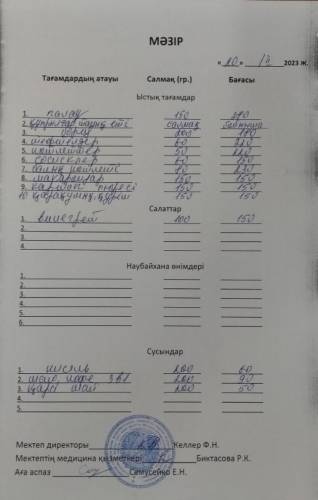 МӘЗІР
« 20 » 12 2023 Ж.
Тағамдардың атауы Салмақ (гр.) Бағасы
Ыстық тағамдар
1. палау 150
2. салмақ бойынша
3. борщ 200
4. тефтелдер 60
5. котлеттер 50
6. сосискелер 60 150
7. балық котлеті
8. макарондар 150 150
9. картоп пюресі 150 150
10 қарақұмық, күріш 150 150
Салаттар
1. винегрет 100 150
2.
3.
4.
Наубайхана өнімдері
1.
2.
3.
4.
5.
6.
Сусындар
1. кисель 200 60
2. шай, кофе 3 в 1 200 90
3. қара шай 200 50
4.
5.
Мектеп директоры Келлер Ф.Н.
Мектептің медицина қызметкері Биктасова Р.К.
Аға аспаз Семусейко Е.Н.